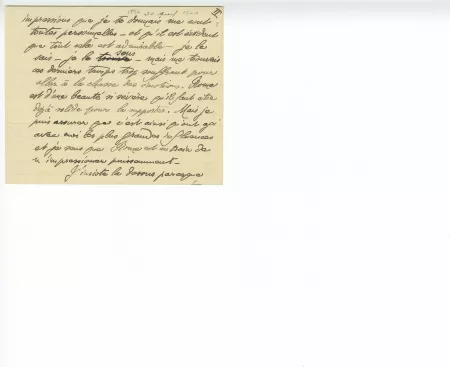 30 avril
IV
impressions que je te donnais me sont
toutes personnelles – et qu'il est évident
que tout cela est admirable – je le
sais – je le sens – mais me trouvais
ces derniers temps trop souffrant pour
aller à la chasse des émotions. Rome
est d'une beauté si sévère qu'il faut être
déjà solide pour la supporter. Mais je
puis assurer que c'est ainsi qu'ont agi
avec moi les plus grandes influences
et je sens que Rome est en train de
m'impressionner puissamment –
J'insiste là dessus parceque